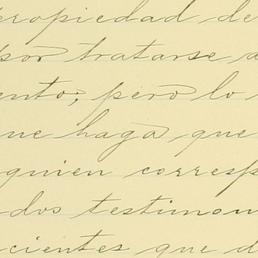 propiedad de
por tratarse a
ento; pero lo
ue haga que
quien corresp
dos testimon
cientes que d